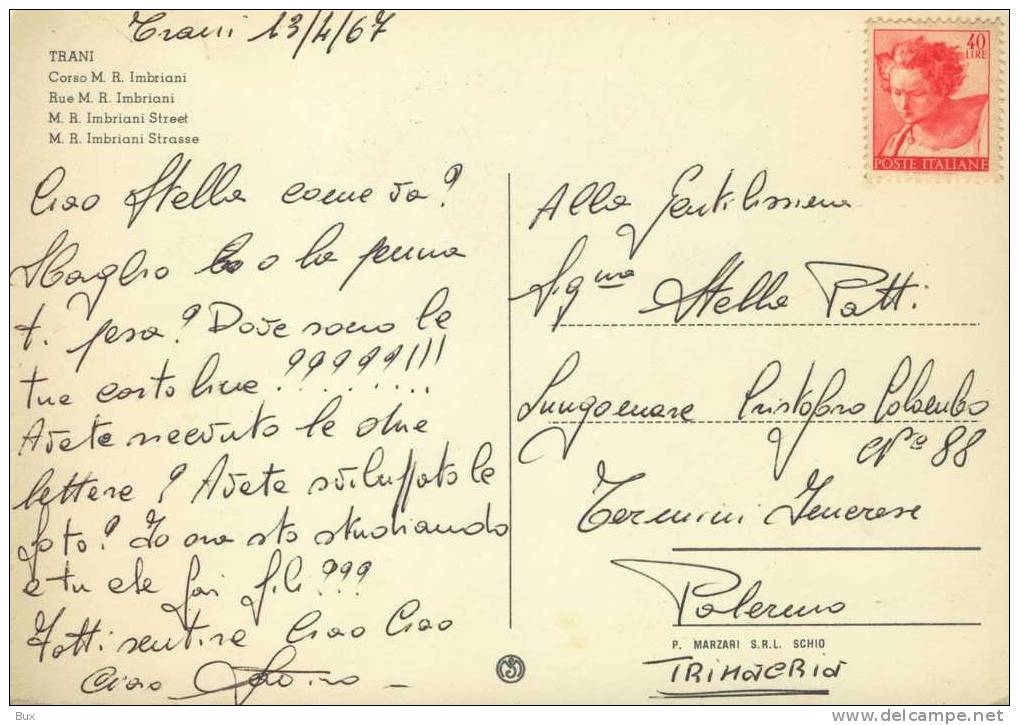 Trani 13/4/67
TRANI
Corso M. R. Imbriani
Rue M. R. Imbriani
M. R. Imbriani Street
M. R. Imbriani Strasse
40
LIRE
POSTE ITALIANE
Ciao Stella come va?
o la penna
ti pesa? Dove sono le
tue cartoline?????!!!
Avete ricevuto le due
lettere? Avete sviluppato le
foto? Io ora sto studiando
e tu che fai fili???
Fatti sentire Ciao Ciao
Ciao
Alla Gentilissima
Sig.na Stella Patti
Lungomare Cristoforo Colombo
N° 88
Termini Imerese
Palermo
P. MARZARI S.R.L. SCHIO
TRINACRIA
Bux
delcampe.net